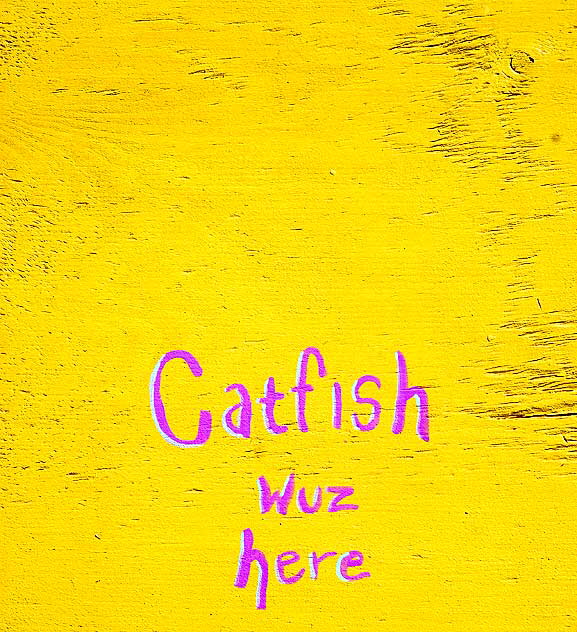 Catfish
Wuz
here